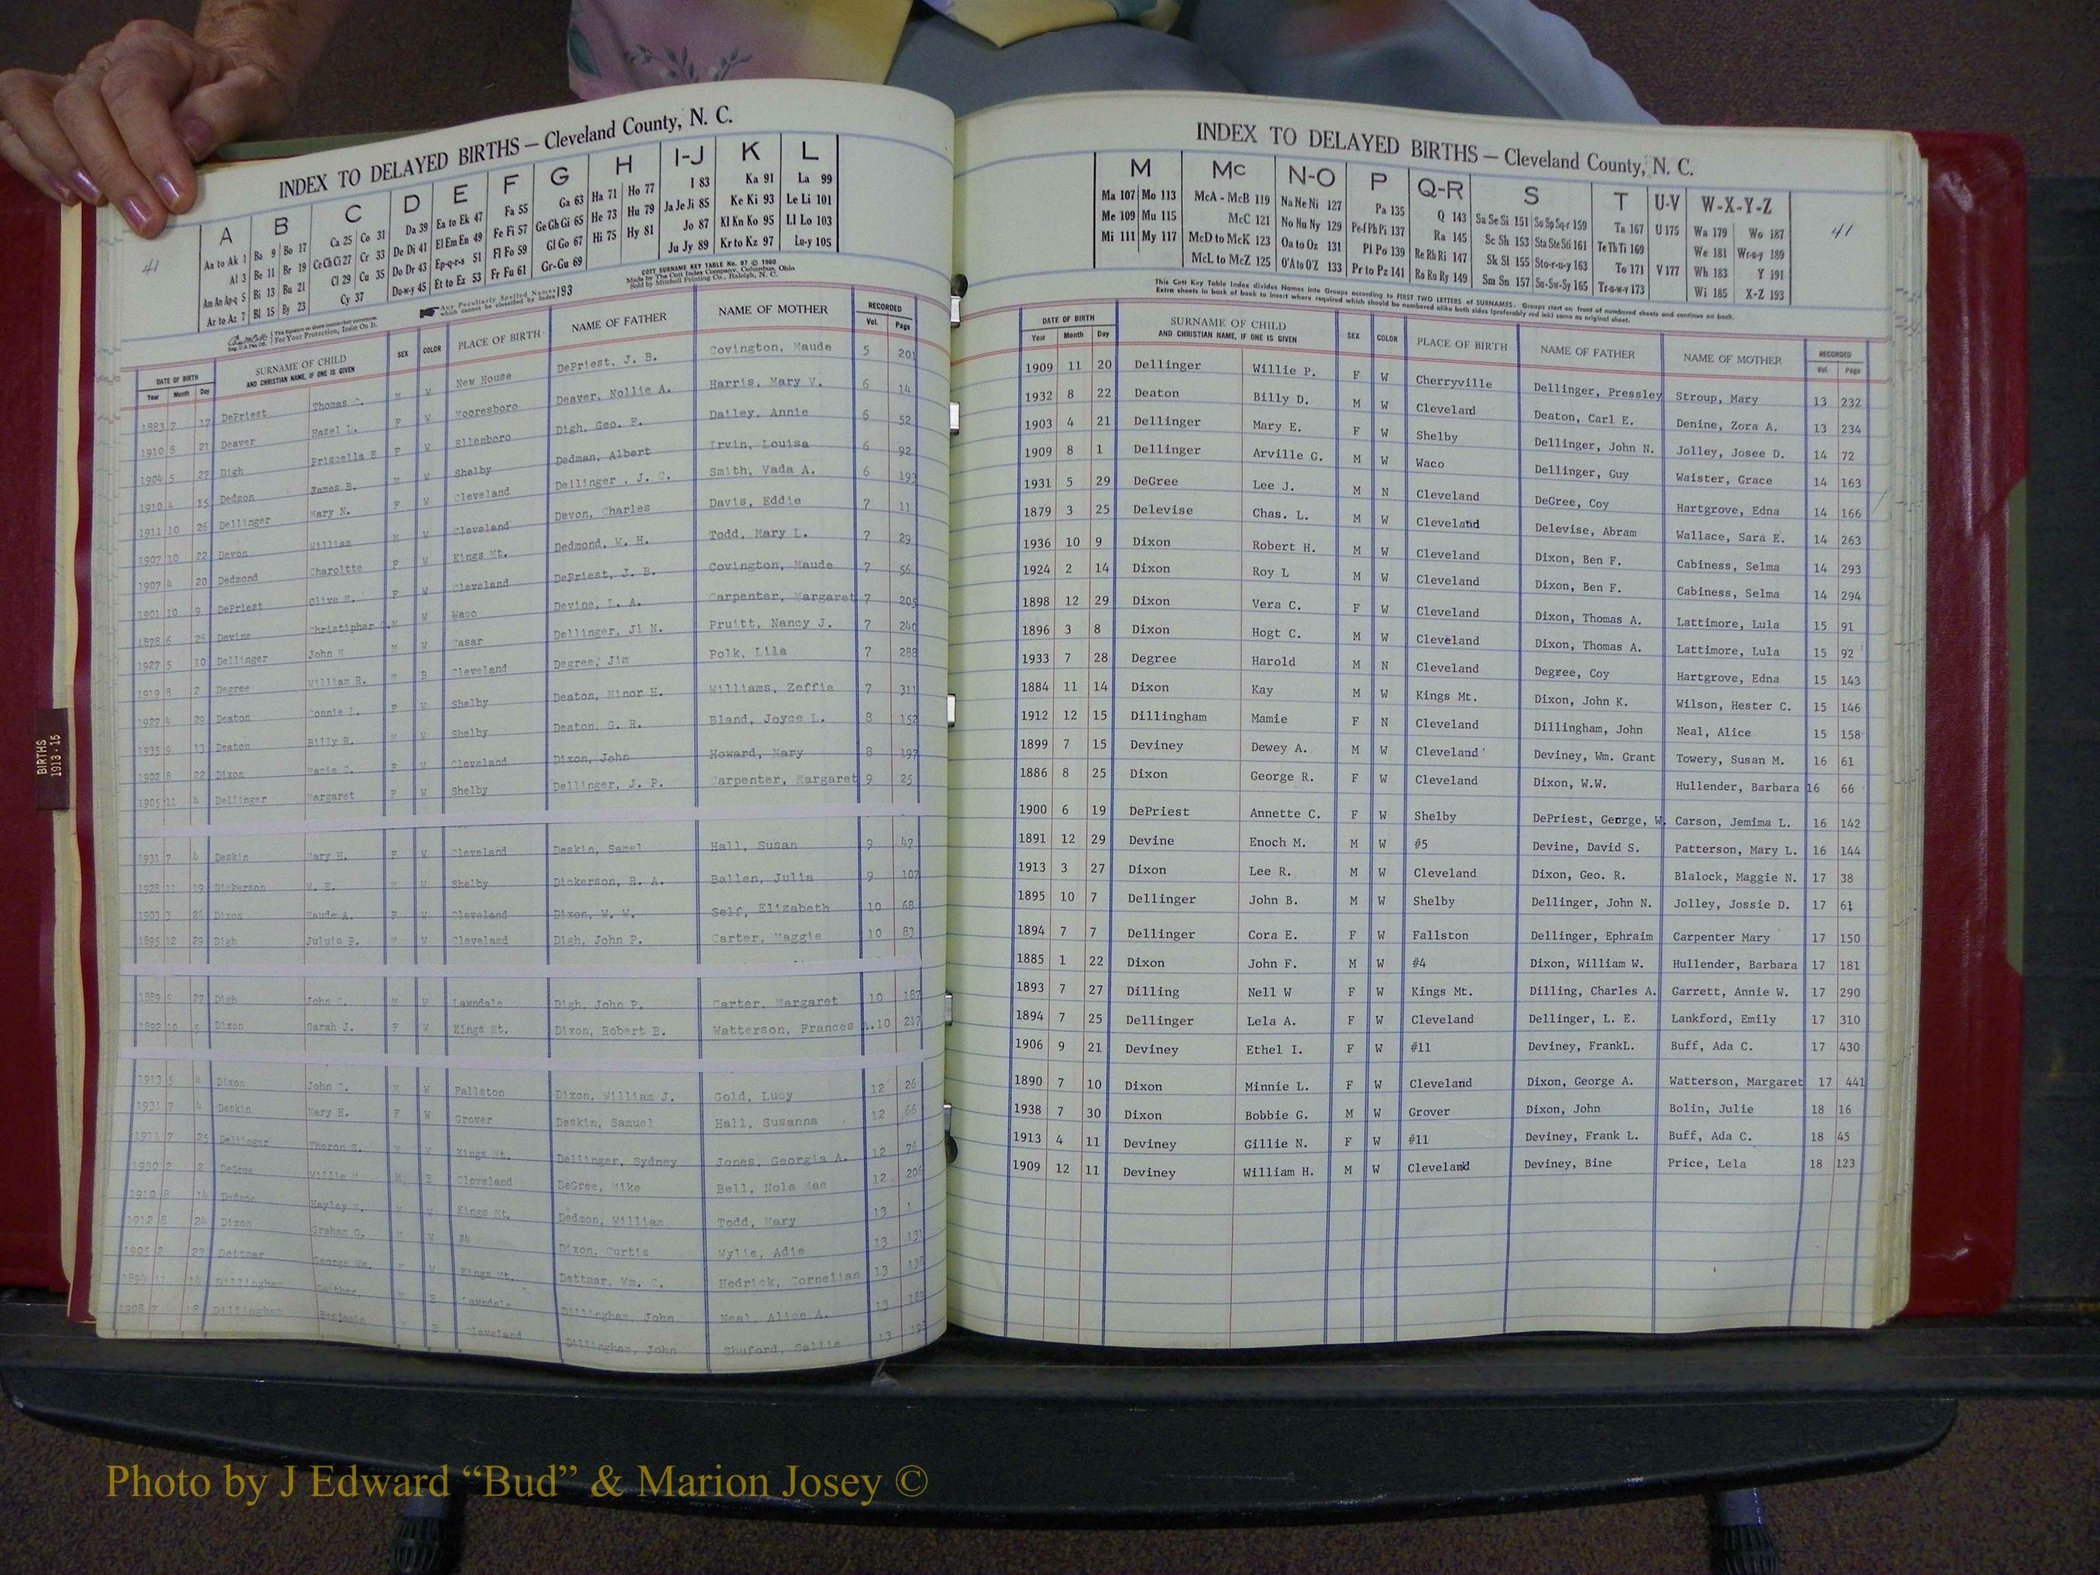 INDEX TO DELAYED BIRTHS — Cleveland County, N. C.
41
A B C D E F G H I-J K L
Aa to Ak 1 Bo 9 Bo 17 Ca 25 Co 31 Da 39 Ea to Ek 47 Fa 55 Ga 63 Ha 71 Ho 77 I 83 Ka 91 La 99
Al 3 Be 11 Br 19 Ce Ch Ci 27 Cr 33 De Di 41 El Em En 49 Fe Fi 57 Ge Gh Gi 65 He 73 Hu 79 Ja Je Ji 85 Ke Ki 93 Le Li 101
Am An Ap-q 5 Bi 13 Bu 21 Cl 29 Cu 35 Do Dr 43 Ep-q-r-s 51 Fl Fo 59 Gl Go 67 Hi 75 Hy 81 Jo 87 Kl Kn Ko 95 Ll Lo 103
Ar to Az 7 Bl 15 By 23 Cy 37 Du-w-y 45 Et to Ez 53 Fr Fu 61 Gr-Gu 69 Ju Jy 89 Kr to Kz 97 Lu-y 105
COTT SURNAME KEY TABLE No. 87 © 1960
Made by The Cott Index Company, Columbus, Ohio
Sold by Mitchell Printing Co., Raleigh, N. C.
Any Peculiarly Spelled Names which cannot be classified by Index 193
For Your Protection, Insist On It.
DATE OF BIRTH Year Month Day SURNAME OF CHILD AND CHRISTIAN NAME, IF ONE IS GIVEN SEX COLOR PLACE OF BIRTH NAME OF FATHER NAME OF MOTHER RECORDED Vol. Page
1883 7 17 DePriest Thomas C. M W New House DePriest, J. B. Covington, Maude 5 201
1910 8 21 Deaver Hazel L. F W Mooresboro Deaver, Nollie A. Harris, Mary V. 6 14
1904 5 27 Digh Priscella E. F W Ellenboro Digh, Geo. F. Dailey, Annie 6 52
1910 4 15 Dedmon James B. M W Shelby Dedman, Albert Irvin, Louisa 6 92
1911 10 26 Dellinger Mary N. F W Cleveland Dellinger , J. C. Smith, Vada A. 6 193
1907 10 22 Devon William M W Cleveland Devon, Charles Davis, Eddie 7 11
1907 4 20 Dedmond Charoltte F W Kings Mt. Dedmond, W. H. Todd, Mary L. 7 29
1901 10 9 DePriest Olive M. F W Cleveland DePriest, J. B. Covington, Maude 7 56
1878 6 26 Devine Christipher M W Waco Devine, L. A. Carpenter, Margaret 7 205
1927 5 10 Dellinger John M W Casar Dellinger, Jl N. Pruitt, Nancy J. 7 240
1919 8 2 Degree William R. M B Cleveland Degree, Jim Polk, Lila 7 288
1927 4 29 Deaton Connie L. F W Shelby Deaton, Minor H. Williams, Zeffie 7 311
1935 9 13 Deaton Billy R. M W Shelby Deaton, G. R. Bland, Joyce L. 8 152
1902 8 22 Dixon F W Cleveland Dixon, John Howard, Mary 8 197
1905 11 4 Dellinger Margaret F W Shelby Dellinger, J. P. Carpenter, Margaret 9 25
1931 7 4 Deskin Mary H. F W Cleveland Deskin, Samel Hall, Susan 9 47
1928 11 19 Dickerson W. E. M W Shelby Dickerson, R. A. Ballen, Julia 9 107
1903 3 26 Dixon Maude A. F W Cleveland Dixon, W. W. Self, Elizabeth 10 68
1895 12 29 Digh Juluis P. M W Cleveland Digh, John P. Carter, Maggie 10 83
1889 5 27 Digh John C. M W Lawndale Digh, John P. Carter, Margaret 10 187
1892 10 5 Dixon Sarah J. F W Kings Mt. Dixon, Robert B. Watterson, Frances A. 10 217
1913 5 4 Dixon John C. M W Fallston Dixon, William J. Gold, Lucy 12 26
1931 7 4 Deskin Mary H. F W Grover Deskin, Samuel Hall, Susanna 12 66
1911 7 25 Dellinger Theron S. M W Kings Mt. Dellinger, Sydney Jones, Georgia A. 12 76
1930 2 2 DeGree Willie M B Cleveland DeGree, Mike Bell, Nola Mae 12 206
1910 8 14 Dedmon Hayley M W Kings Mt. Dedmon, William Todd, Mary 13 1
1912 8 24 Dixon Graham O. M W Dixon, Curtis Wylie, Adie 13 131
1905 2 23 Dettmer George Wm. M W Kings Mt. Dettmar, Wm. C. Hedrick, Cornelian 13
Dillingham B Lawndale Dillingham, John Neal, Alice A. 13
18 Dillingham Benjamin B Cleveland Dillingham, John Shuford, Sallie 13
INDEX TO DELAYED BIRTHS — Cleveland County, N. C.
M Mc N-O P Q-R S T U-V W-X-Y-Z
41
Ma 107 Mo 113 McA - McB 119 Na Ne Ni 127 Pa 135 Q 143 Sa Se Si 151 So Sp Sq-r 159 Ta 167 U 175 Wa 179 Wo 187
Me 109 Mu 115 McC 121 No Nu Ny 129 Pe-f Ph Pi 137 Ra 145 Sc Sh 153 Sta Ste Sti 161 Te Th Ti 169 We 181 Wr-u-y 189
Mi 111 My 117 McD to McK 123 Oa to Oz 131 Pl Po 139 Re Rh Ri 147 Sk Sl 155 Sto-r-u-y 163 To 171 V 177 Wh 183 Y 191
McL to McZ 125 O'A to O'Z 133 Pr to Pz 141 Ro Ru Ry 149 Sm Sn 157 Su-Sw-Sy 165 Tr-u-w-y 173 Wi 185 X-Z 193
This Cott Key Table Index divides Names into Groups according to FIRST TWO LETTERS of SURNAMES. Groups start on front of numbered sheets and continue on back.
Extra sheets in back of book to insert where required which should be numbered alike both sides (preferably red ink) same as original sheet.
DATE OF BIRTH Year Month Day SURNAME OF CHILD AND CHRISTIAN NAME, IF ONE IS GIVEN SEX COLOR PLACE OF BIRTH NAME OF FATHER NAME OF MOTHER RECORDED Vol. Page
1909 11 20 Dellinger Willie P. F W Cherryville Dellinger, Pressley Stroup, Mary 13 232
1932 8 22 Deaton Billy D. M W Cleveland Deaton, Carl E. Denine, Zora A. 13 234
1903 4 21 Dellinger Mary E. F W Shelby Dellinger, John N. Jolley, Josee D. 14 72
1909 8 1 Dellinger Arville G. M W Waco Dellinger, Guy Waister, Grace 14 163
1931 5 29 DeGree Lee J. M N Cleveland DeGree, Coy Hartgrove, Edna 14 166
1879 3 25 Delevise Chas. L. M W Cleveland Delevise, Abram Wallace, Sara E. 14 263
1936 10 9 Dixon Robert H. M W Cleveland Dixon, Ben F. Cabiness, Selma 14 293
1924 2 14 Dixon Roy L M W Cleveland Dixon, Ben F. Cabiness, Selma 14 294
1898 12 29 Dixon Vera C. F W Cleveland Dixon, Thomas A. Lattimore, Lula 15 91
1896 3 8 Dixon Hogt C. M W Cleveland Dixon, Thomas A. Lattimore, Lula 15 92
1933 7 28 Degree Harold M N Cleveland Degree, Coy Hartgrove, Edna 15 143
1884 11 14 Dixon Kay M W Kings Mt. Dixon, John K. Wilson, Hester C. 15 146
1912 12 15 Dillingham Mamie F N Cleveland Dillingham, John Neal, Alice 15 158
1899 7 15 Deviney Dewey A. M W Cleveland Deviney, Wm. Grant Towery, Susan M. 16 61
1886 8 25 Dixon George R. F W Cleveland Dixon, W.W. Hullender, Barbara 16 66
1900 6 19 DePriest Annette C. F W Shelby DePriest, George, W. Carson, Jemima L. 16 142
1891 12 29 Devine Enoch M. M W #5 Devine, David S. Patterson, Mary L. 16 144
1913 3 27 Dixon Lee R. M W Cleveland Dixon, Geo. R. Blalock, Maggie N. 17 38
1895 10 7 Dellinger John B. M W Shelby Dellinger, John N. Jolley, Jossie D. 17 61
1894 7 7 Dellinger Cora E. F W Fallston Dellinger, Ephraim Carpenter Mary 17 150
1885 1 22 Dixon John F. M W #4 Dixon, William W. Hullender, Barbara 17 181
1893 7 27 Dilling Nell W F W Kings Mt. Dilling, Charles A. Garrett, Annie W. 17 290
1894 7 25 Dellinger Lela A. F W Cleveland Dellinger, L. E. Lankford, Emily 17 310
1906 9 21 Deviney Ethel I. F W #11 Deviney, FrankL. Buff, Ada C. 17 430
1890 7 10 Dixon Minnie L. F W Cleveland Dixon, George A. Watterson, Margaret 17 441
1938 7 30 Dixon Bobbie G. M W Grover Dixon, John Bolin, Julie 18 16
1913 4 11 Deviney Gillie N. F W #11 Deviney, Frank L. Buff, Ada C. 18 45
1909 12 11 Deviney William H. M W Cleveland Deviney, Bine Price, Lela 18 123
BIRTHS
1913-15
Photo by J Edward “Bud” & Marion Josey ©